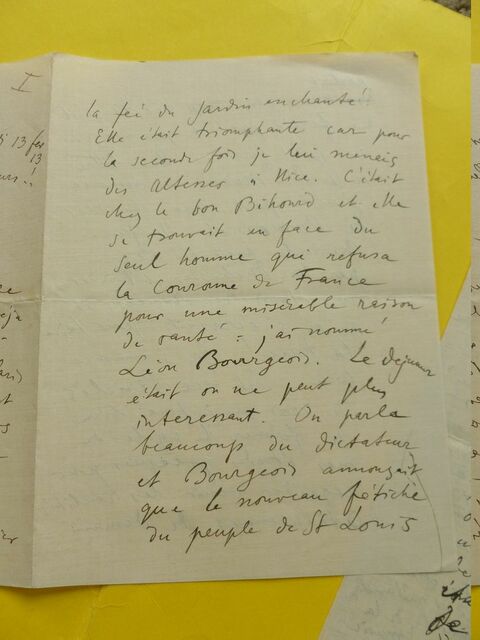 I
la feé du jardin enchanté!
Elle était triomphante car pour
la seconde fois je lui menais
des altesses à Nice. C'était
chez le bon Bihourd et elle
se trouvait en face du
seul homme qui refusa
la Couronne de France
pour une misérable raison
de santé : j'ai nommé
Léon Bourgeois. Le dejeuner
était on ne peut plus
interessant. On parla
beaucoup du dictateur
et Bourgeois annonçait
que le nouveau fétiche
du peuple de St Louis
13 fev
13